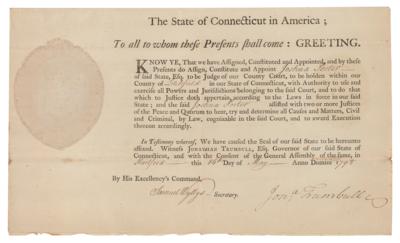 The State of Connecticut in America;
To all to whom these Presents shall come: GREETING.
KNOW YE, That we have Assigned, Constituted and Appointed, and by these
Presents do Assign, Constitute and Appoint Joshua Porter
of said State, Esq. to be Judge of our County Court, to be holden within our
County of Litchfield in our State of Connecticut, with Authority to use and
exercise all Powers and Jurisdictions belonging to the said Court, and to do that
which to Justice doth appertain, according to the Laws in force in our said
State; and the said Joshua Porter assisted with two or more Justices
of the Peace and Quorum to hear, try and determine all Causes and Matters, Civil
and Criminal, by Law, cognizable in the said Court, and to award Execution
thereon accordingly.
In Testimony whereof, We have caused the Seal of our said State to be hereunto
affixed. Witness JONATHAN TRUMBULL, Esq. Governor of our said State of
Connecticut, and with the Consent of the General Assembly of the same, in
Hartford this Day of May Anno Domini
By His Excellency's Command,
Samuel Wyllys Secretary.
Jonª Trumbull